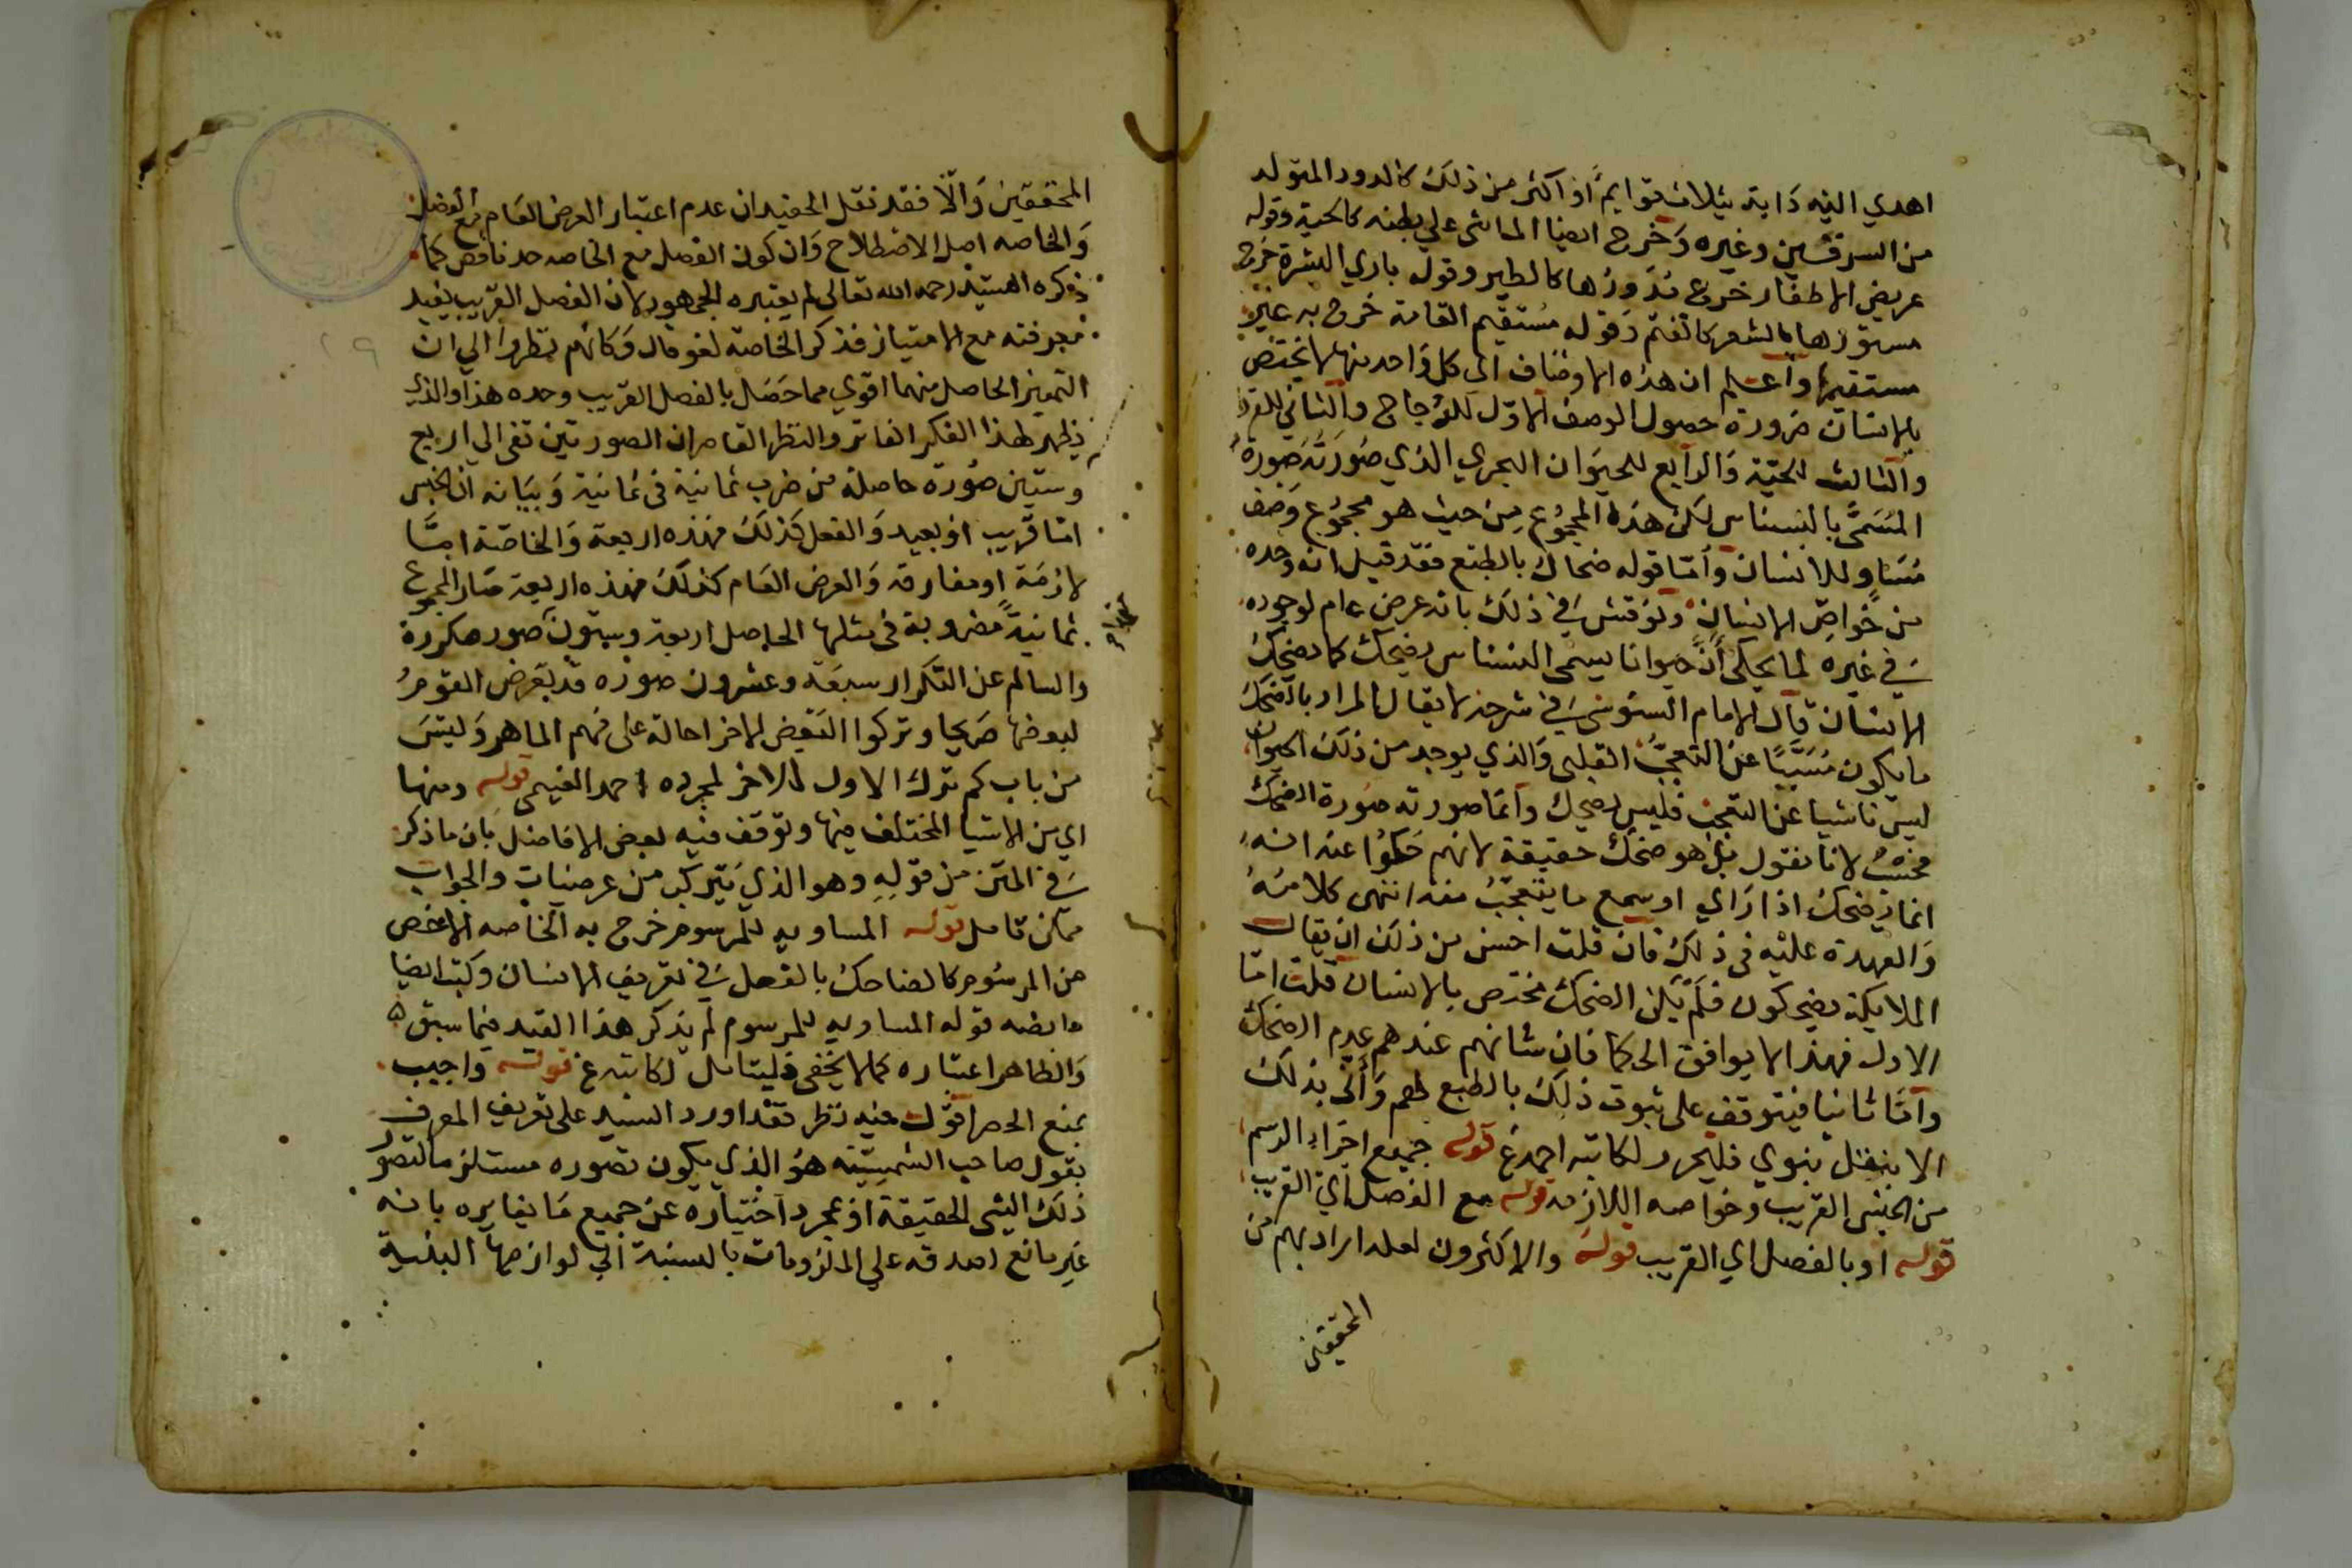 اهدي اليه دابة بثلاث قوايم او اكثر من ذلك كالدود المتولد
من السرقين وغيره وخرج ايضا الماشي علي بطنه كالحية وقوله
عريض الاظفار خرج مدورها كالطير وقوله بادي البشرة خرج
مستورها بالشعر كالغنم وقوله مستقيم القامة خرج به غير
مستقيمها واعلم ان هذه الاوصاف الى كل واحد منها لا يختص
بالانسان ضرورة حصول الوصف الاول للدجاج والثاني للقرد
والثالث للحية والرابع للحيوان البحري الذي صورته صورة
المسمى بالنسناس لكن هذه المجموع من حيث هو مجموع وصف
مساو للانسان وأما قوله ضحاك بالطبع فقد قيل انه وحده
من خواص الانسان ونوقش في ذلك بانه عرض عام لوجوده
في غيره لما يحكى أن حيوانا يسمى النسناس يضحك كما يضحك
الانسان قال الامام السنوسي في شرحه لا يقال المراد بالضحك
ما يكون مسببا عن التعجب القلبي والذي يوجد من ذلك الحيوان
ليس ناشيا عن التعجب فليس بضحك وانما صورته صورة الضحك
فحسب لانا نقول بل هو ضحك حقيقة لانهم حكوا عنه انه
انما يضحك اذا راي او سمع ما يتعجب منه انتهى كلامه
والعهدة عليه في ذلك فان قلت احسن من ذلك ان يقال
الملايكة يضحكون فلم يكن الضحك مختص بالانسان قلت اما
الاول فهذا لا يوافق الحكما فان شانهم عندهم عدم الضحك
وأما ثانيا فيتوقف على ثبوت ذلك بالطبع لهم وأنى بذلك
الا بنقل نبوي فليحرر لكاتبه احمد غ قوله جميع اجزاء الرسم
من الجنس القريب وخواصه اللازمة قوله مع الفصل اي القريب
قوله او بالفصل اي القريب قوله والاكثرون لعله اراد بهم من
المحققين
المحققين والا فقد نقل الحفيد ان عدم اعتبار العرض العام مع الفصل
والخاصه اصل الاصطلاح وان كون الفصل مع الخاصه حد ناقص كما
ذكره السيد رحمه الله تعالى لم يعتبره الجمهور لان الفصل القريب يفيد
معرفته مع الامتياز فذكر الخاصة لغو قال وكانهم نظروا الي ان
التمييز الحاصل منهما اقوي مما حصل بالفصل القريب وحده هذا والذي
يظهر لهذا الفكر الفاتر والنظر القاصر ان الصور تين تفى الي اربع
وستين صورة حاصلة من ضرب ثمانية في ثمانية وبيانه ان الجنس
اما قريب او بعيد والفصل كذلك فهذه اربعة والخاصة اما
لازمة او مفارقة والعرض العام كذلك فهذه اربعة صار المجموع
ثمانية مضروبة في مثلها الحاصل اربعة وستون صور مكررة
والسالم عن التكرار سبعة وعشرون صورة قد تعرض القوم
لبعضها صريحا وتركوا التعرض للاخر احالة على فهم الماهر وليس
من باب كم ترك الاول للاخر لمجرده احمد الغنيمى قوله ومنها
اي من الاشيا المختلف فيها وتوقف فيه بعض الافاضل بان ما ذكر
في المتن من قوله وهو الذي يتركب من عرضيات والجواب
ممكن تامل قوله المساويه للمرسوم خرج به الخاصه الاخص
من المرسوم كالضاحك بالفعل في تعريف الانسان وكتب ايضا
ما نصه قوله المساويه للمرسوم لم يذكر هذا القيد فيما سبق
والظاهر اعتباره كما لا يخفى فليتامل لكاتبه غ قوله واجيب
بمنع الحصر اقول فيه نظر فقد اورد السيد على تعريف المعرف
بقول صاحب الشمسية هو الذي يكون تصوره مستلزما لتصور
ذلك الشى الحقيقة او بمجرد اختياره عن جميع ما يغايره بانه
غير مانع لصدقه علي الملزومات بالنسبة الي لوازمها البينة